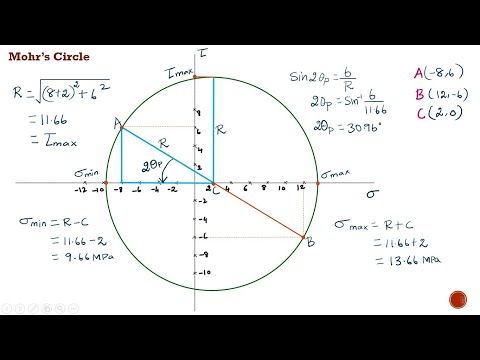 Mohr's Circle
R = √(8+2)² + 6²
= 11.66
= τmax
τ
τmax
Sin2θp = 6/R
2θp = Sin⁻¹ 6/11.66
2θp = 30.96°
A(-8,6)
B(12,-6)
C(2,0)
8
6
4
2
A
R
R
2θp
σmin
σmax
-8 -6 -4 -2
C
2 4 6 8 10 12
σ
-2
-4
-6
-8
-10
B
σmin = R-C
= 11.66-2
= 9.66 MPa
σmax = R+C
= 11.66+2
= 13.66 MPa